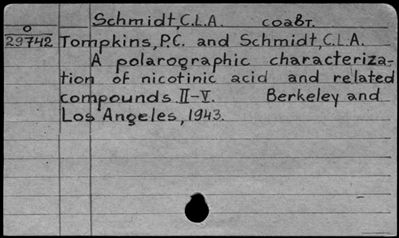 Schmidt, C.L.A. соавт.
0
29742 Tompkins, P.C. and Schmidt, C.L.A.
A polarographic characteriza-
tion of nicotinic acid and related
compounds II-V. Berkeley and
Los Angeles, 1943.